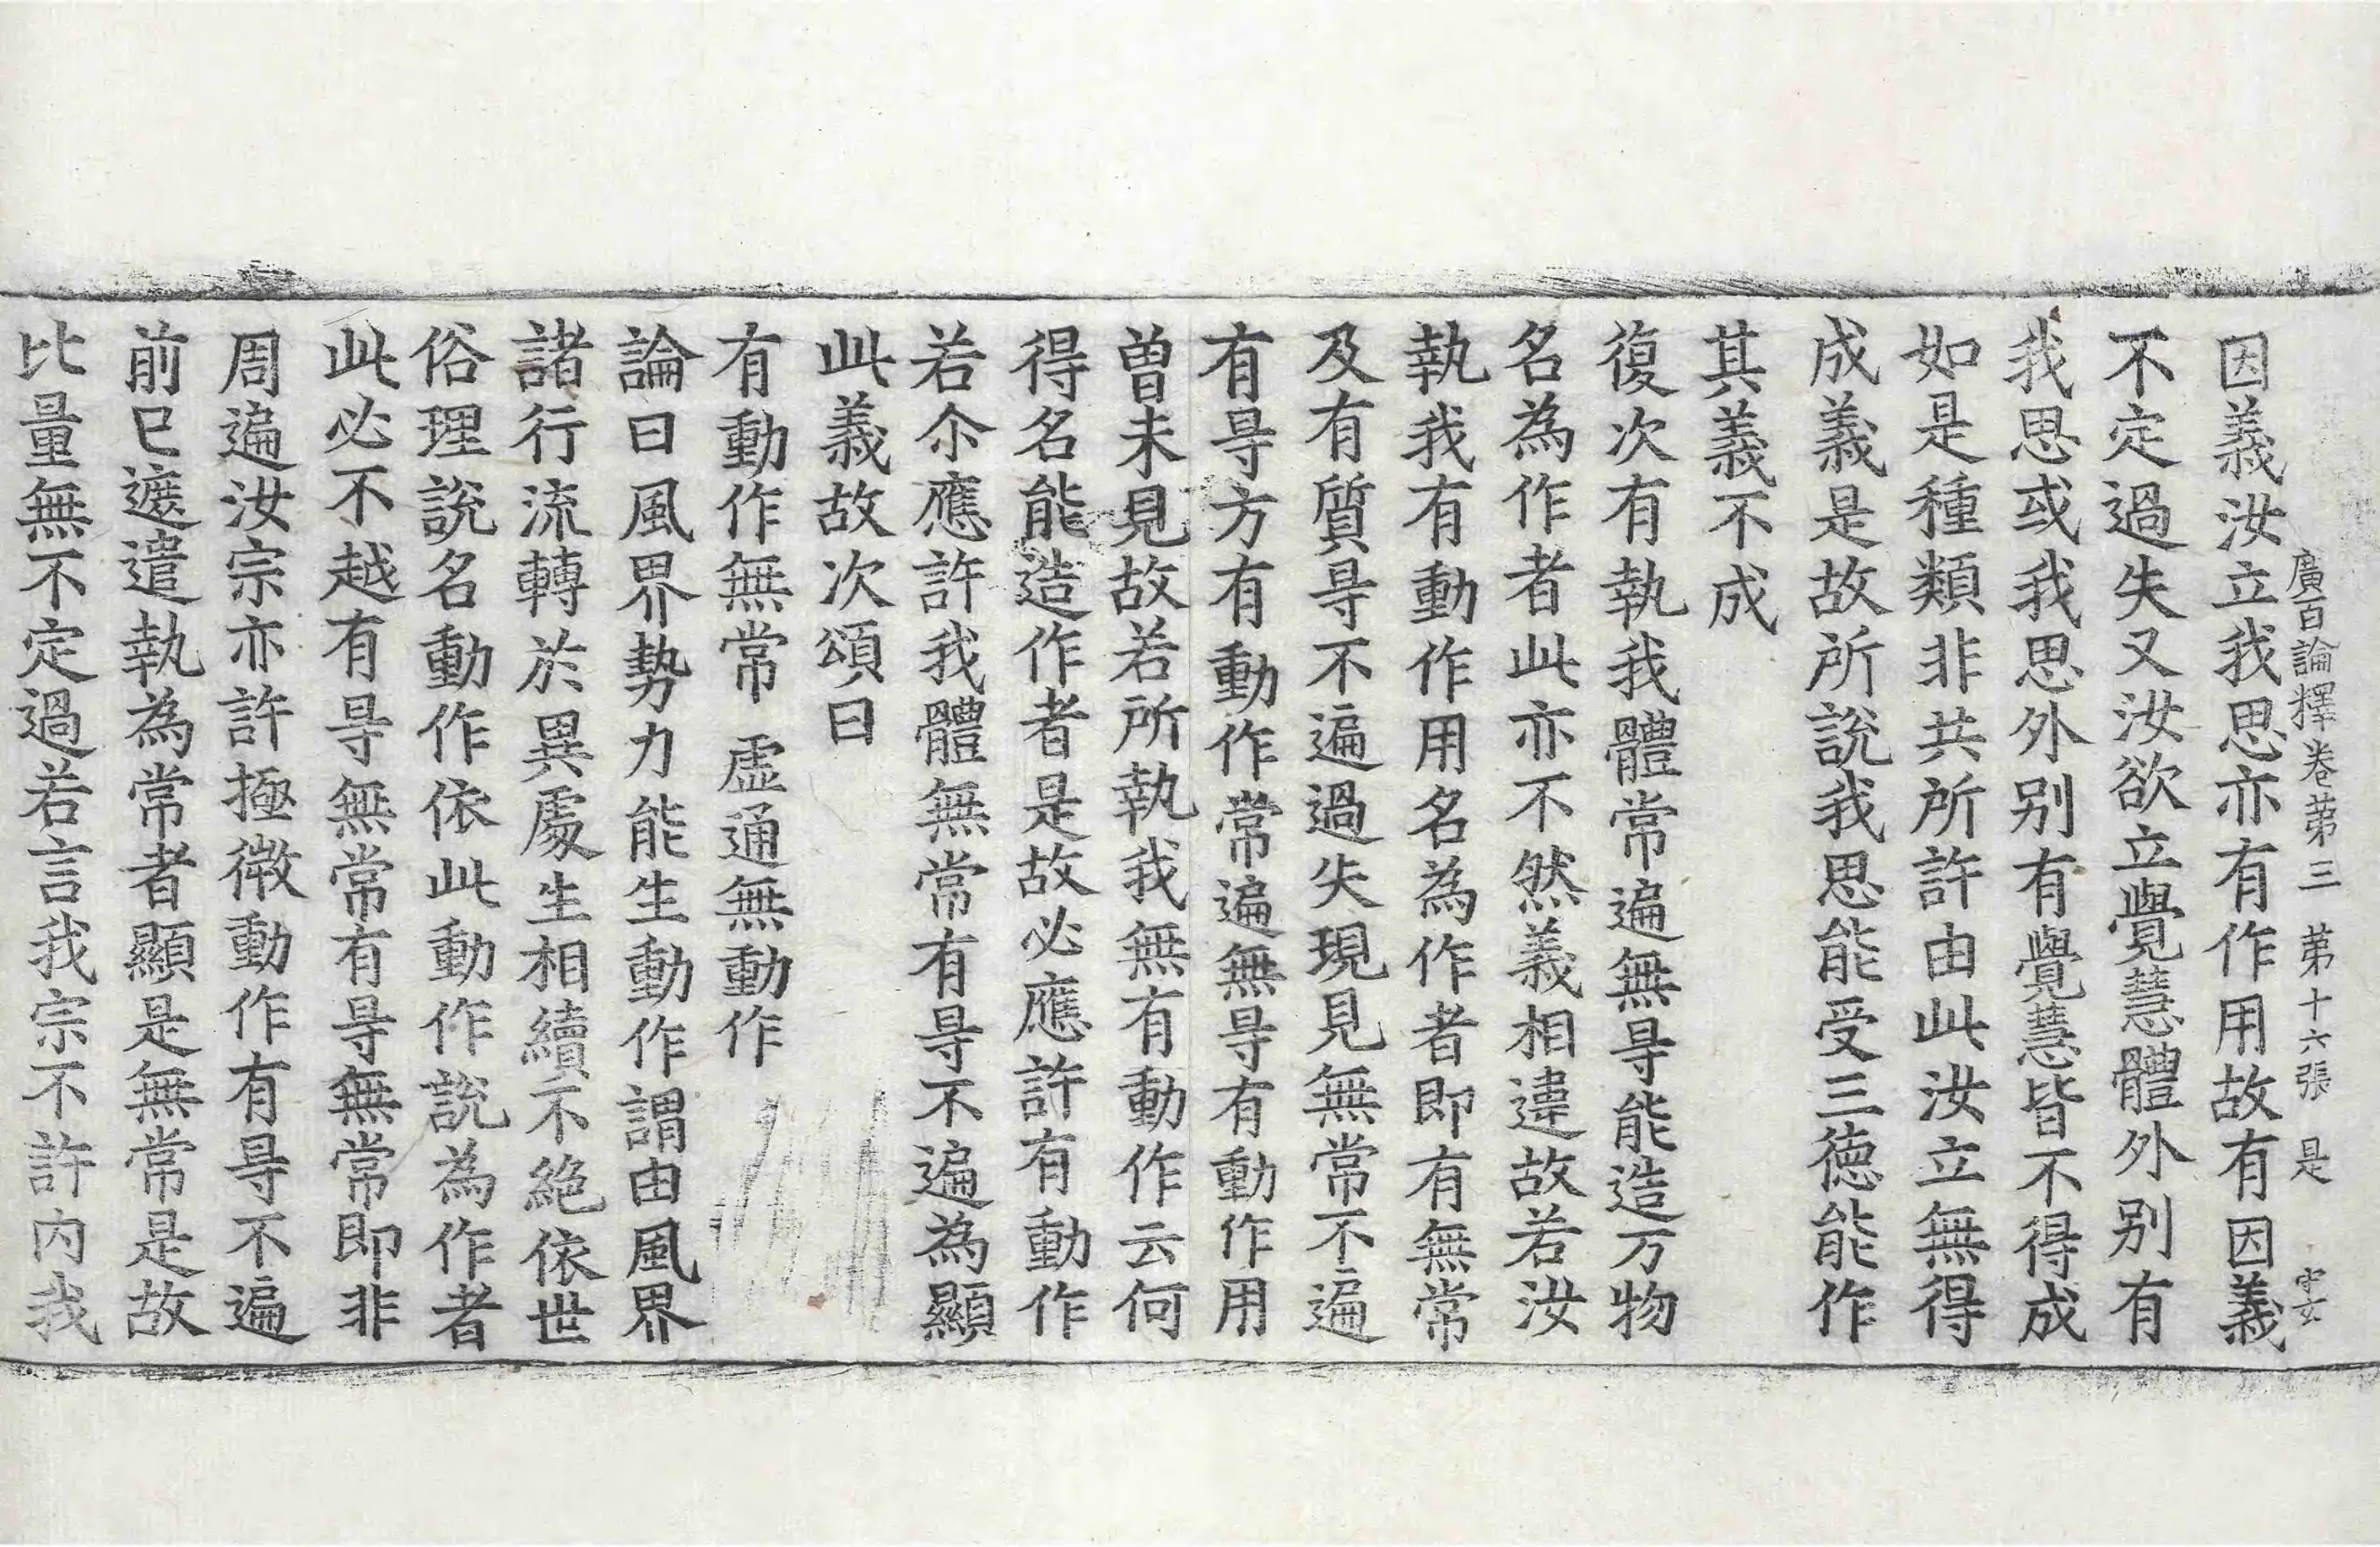 因義汝立我思亦有作用故有因義
廣百論釋卷苐三 苐十六張 是
不定過失又汝欲立覺慧體外别有
我思或我思外别有覺慧皆不得成
如是種類非共所許由此汝立無得
成義是故所說我思能受三德能作
其義不成
復次有執我體常遍無㝵能造万物
名為作者此亦不然義相違故若汝
執我有動作用名為作者即有無常
及有質㝵不遍過失現見無常不遍
有㝵方有動作常遍無㝵有動作用
曾未見故若所執我無有動作云何
得名能造作者是故必應許有動作
若尒應許我體無常有㝵不遍為顯
此義故次頌曰
有動作無常 虛通無動作
論曰風界勢力能生動作謂由風界
諸行流轉於異處生相續不絶依世
俗理說名動作依此動作說為作者
此必不越有㝵無常有㝵無常即非
周遍汝宗亦許極微動作有㝵不遍
前已遮遣執為常者顯是無常是故
比量無不定過若言我宗不許内我